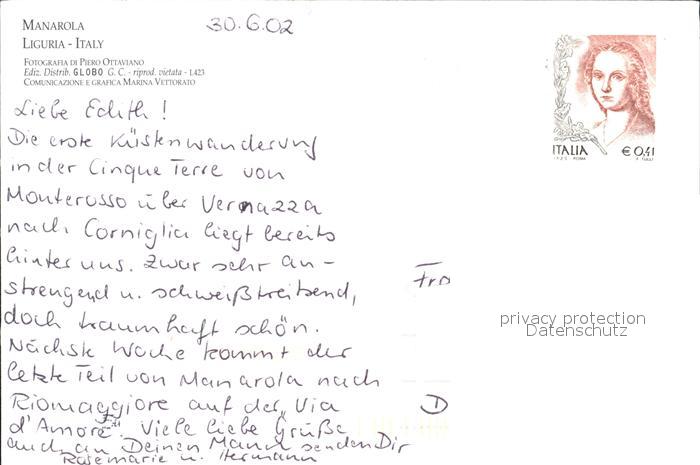 MANAROLA
LIGURIA - ITALY
FOTOGRAFIA DI PIERO OTTAVIANO
Ediz. Distrib. GLOBO G. C. - riprod. vietata - L423
COMUNICAZIONE E GRAFICA MARINA VETTORATO
30.6.02
Liebe Edith!
Die erste Küstenwanderung
in der Cinque Terre von
Monterosso über Vernazza
nach Corniglia liegt bereits
hinter uns. Zwar sehr an-
strengend u. schweißtreibend,
doch traumhaft schön.
Nächste Woche kommt der
letzte Teil von Manarola nach
Riomaggiore auf der "Via
d'Amore". Viele liebe Grüße
auch an Deinen Mann senden Dir
Rosemarie u. Hermann
ITALIA
€ 0,41
Fra
D
privacy protection
Datenschutz